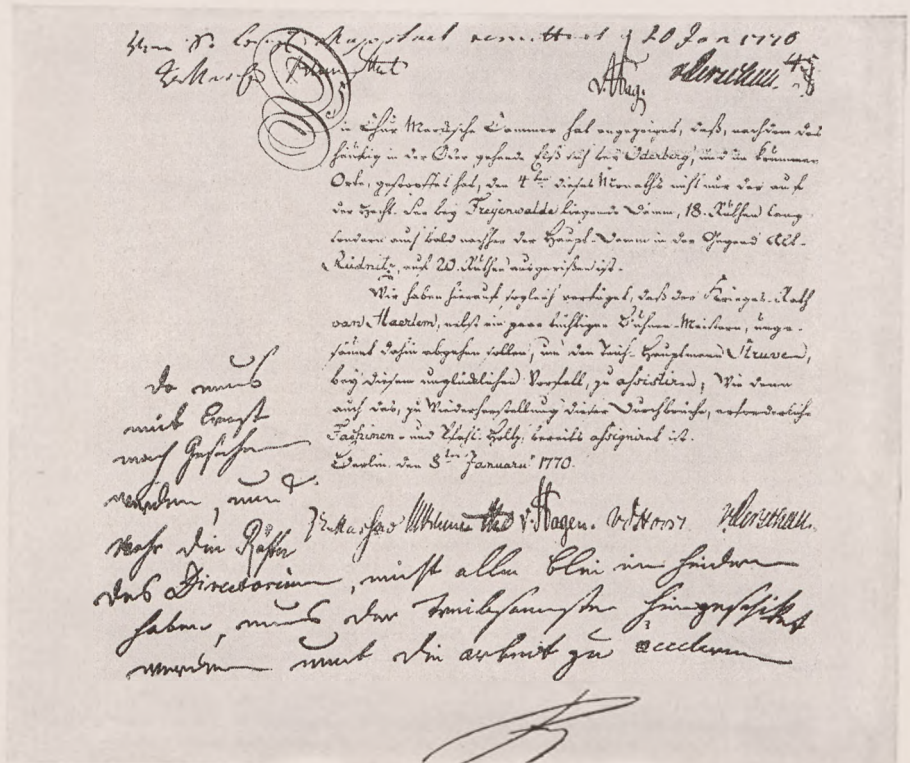 Von Sr königl. Majestaet remittirt d 20 Jan 1770
v. Hag. v Derschau
Die Chur Märcksche Cammer hat angezeiget, daß, nachdem das
häuffig in der Oder gehende Eyß sich bey Oderberg, und im krummen
Orte, gestopffet hat, den 4ten dieses Monaths nicht nur der auf
der Hecht See bey Freyenwalde liegende Damm, 18. Ruthen lang
sondern auch bald nachher der Haupt-Damm in der Gegend Alt-
Rüdnitz, auf 20. Ruthen ausgerißen ist.
Wir haben hierauf sogleich verfüget, daß der Krieges-Rath
van Haerlem, nebst ein paar tüchtigen Buhnen-Meistern, unge-
säumt dahin abgehen sollen, um dem Teich-Hauptmann Struven,
bey diesem unglücklichen Vorfall, zu assistiren; Wie denn
auch das, zu Wiederherstellung dieser Durchbrüche, erforderliche
Faschinen- und Pfahl-Holtz, bereits assigniret ist.
Berlin. den 8ten Januarii 1770.
v. Hagen. v d Horst v Derschau.
da mus
mit Ernst
nach Gesehen
werden, und
wohr die Räthe
des Directorium, nicht allen blei im hindern
haben, mus der hingeschikt
werden umb die arbeit zu